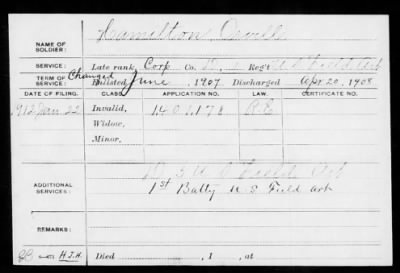 NAME OF SOLDIER: Hamilton Orville
SERVICE: Late rank, Corp Co. D, Reg't U.S. Field Art
TERM OF SERVICE: Changed Enlisted June, 1907. Discharged Apr 20, 1908
DATE OF FILING. CLASS. APPLICATION NO. LAW. CERTIFICATE NO.
1912 Jan. 22 Invalid, 1.401.178
Widow,
Minor,
ADDITIONAL SERVICES: D, 5 U S Field Art
1st Batty U S Field art
REMARKS:
H.J.H. Died , 1 , at